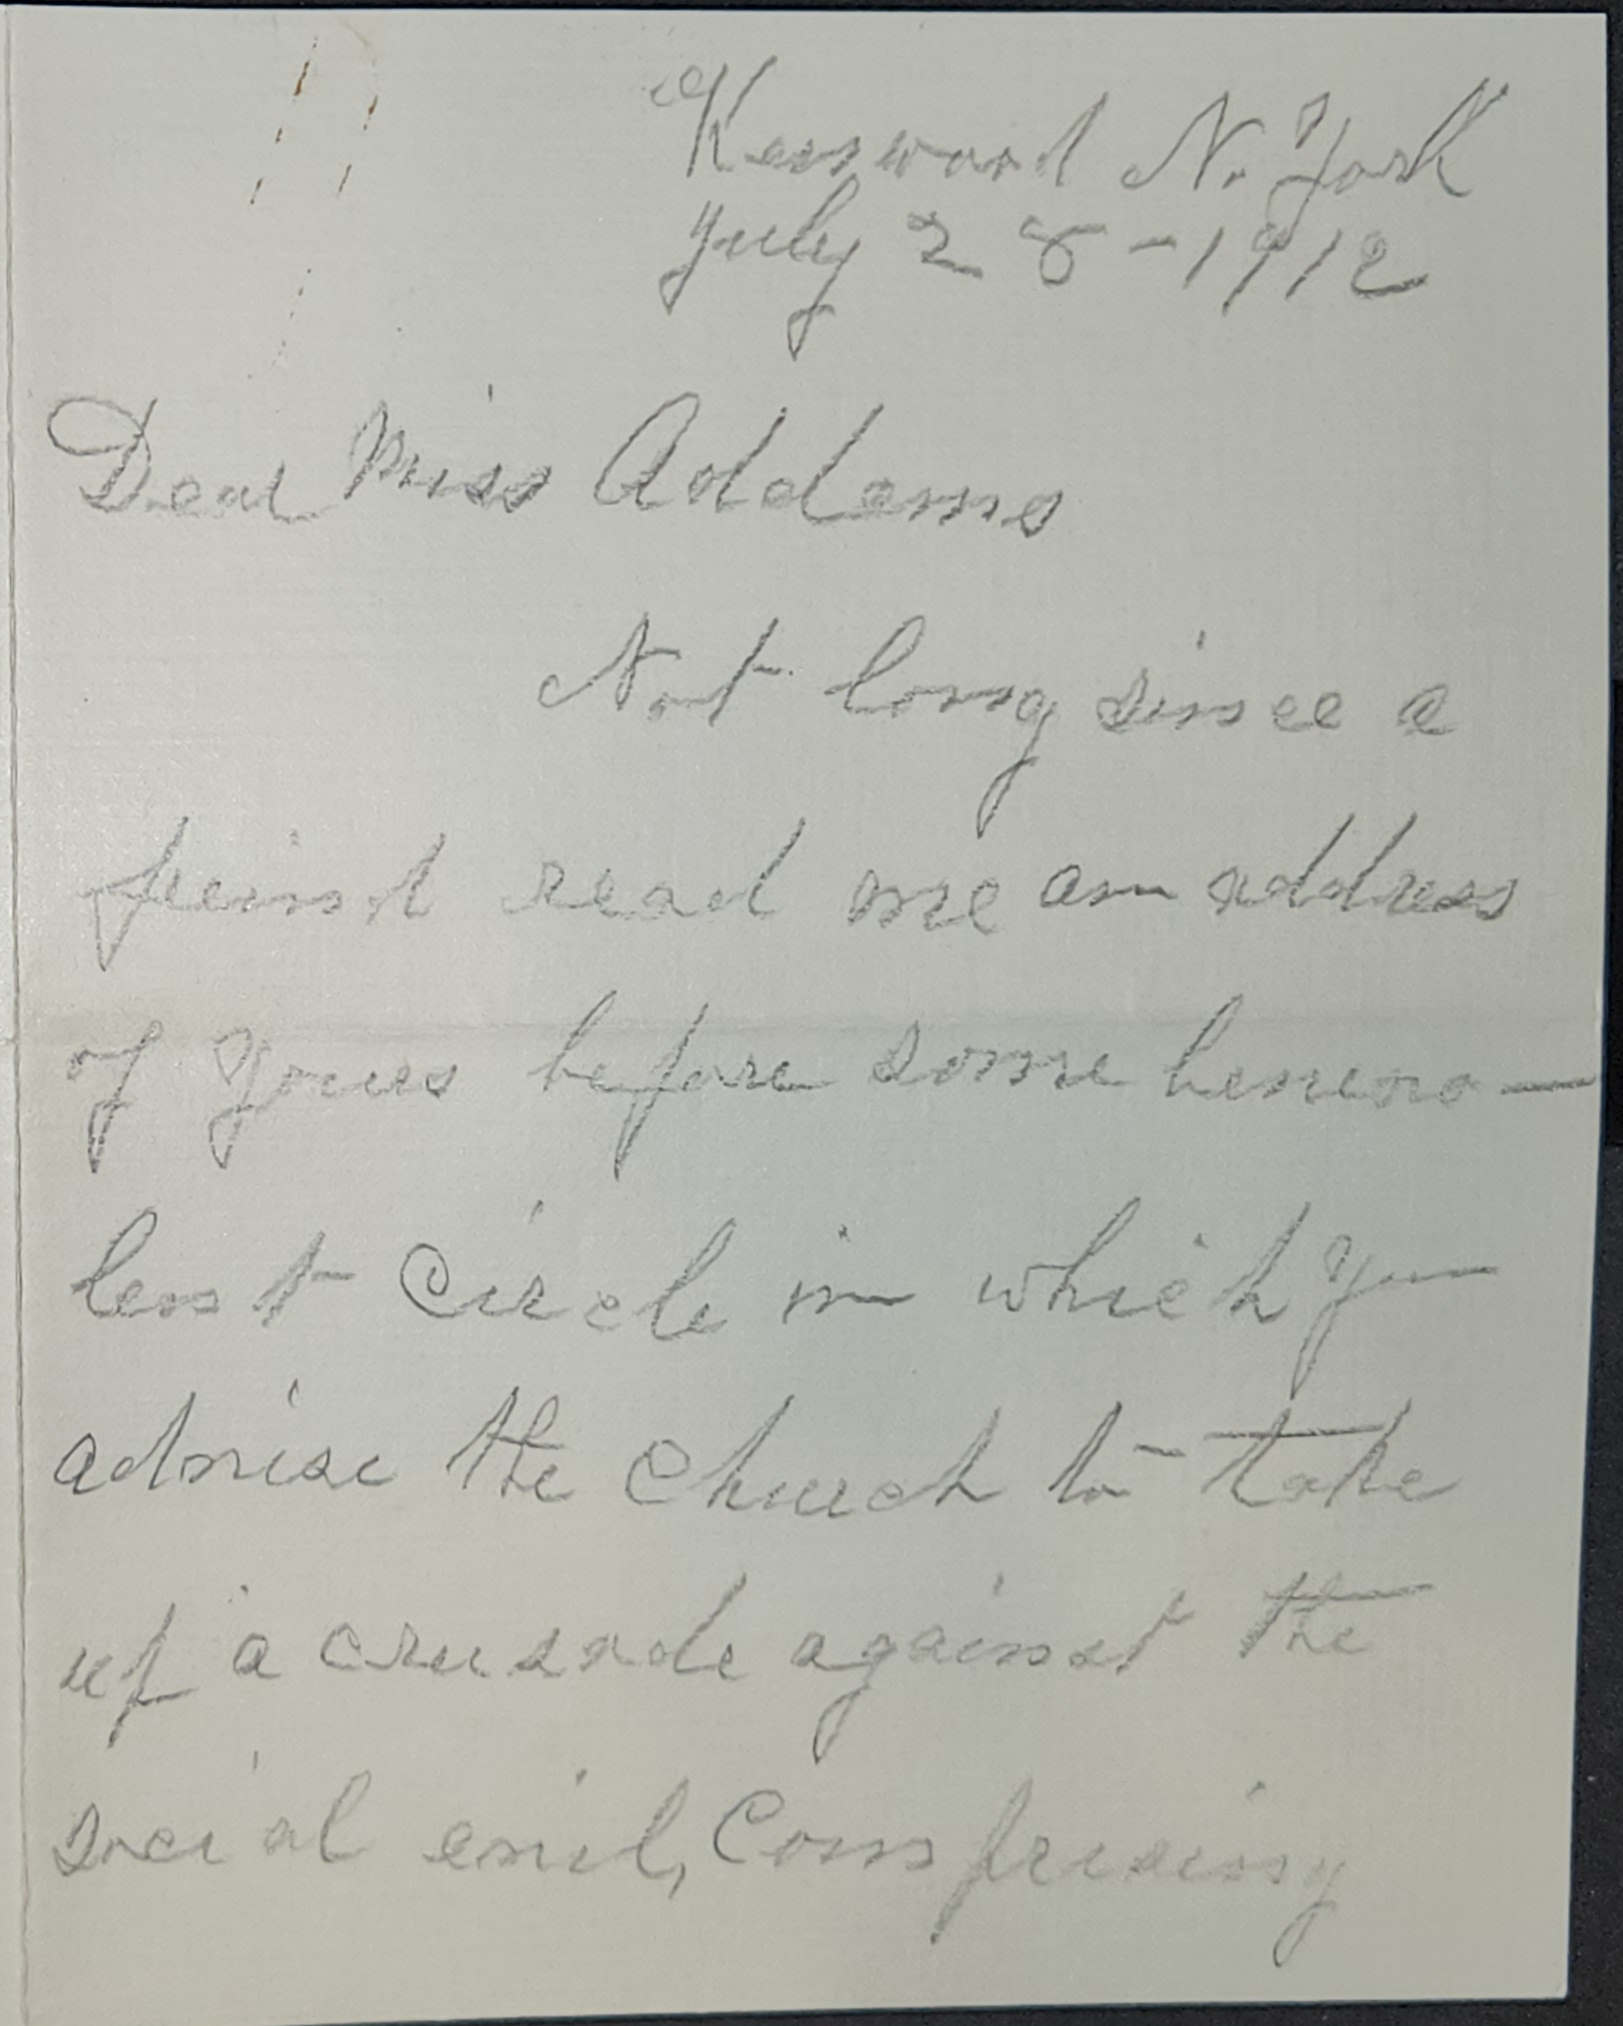 Kenwood N. York
July 28-1912
Dear Miss Addams
Not long since a
freind read me an address
of yours before some benevo-
lent circle in which you
advise the church to take
up a crusade against the
social evil, Comprising